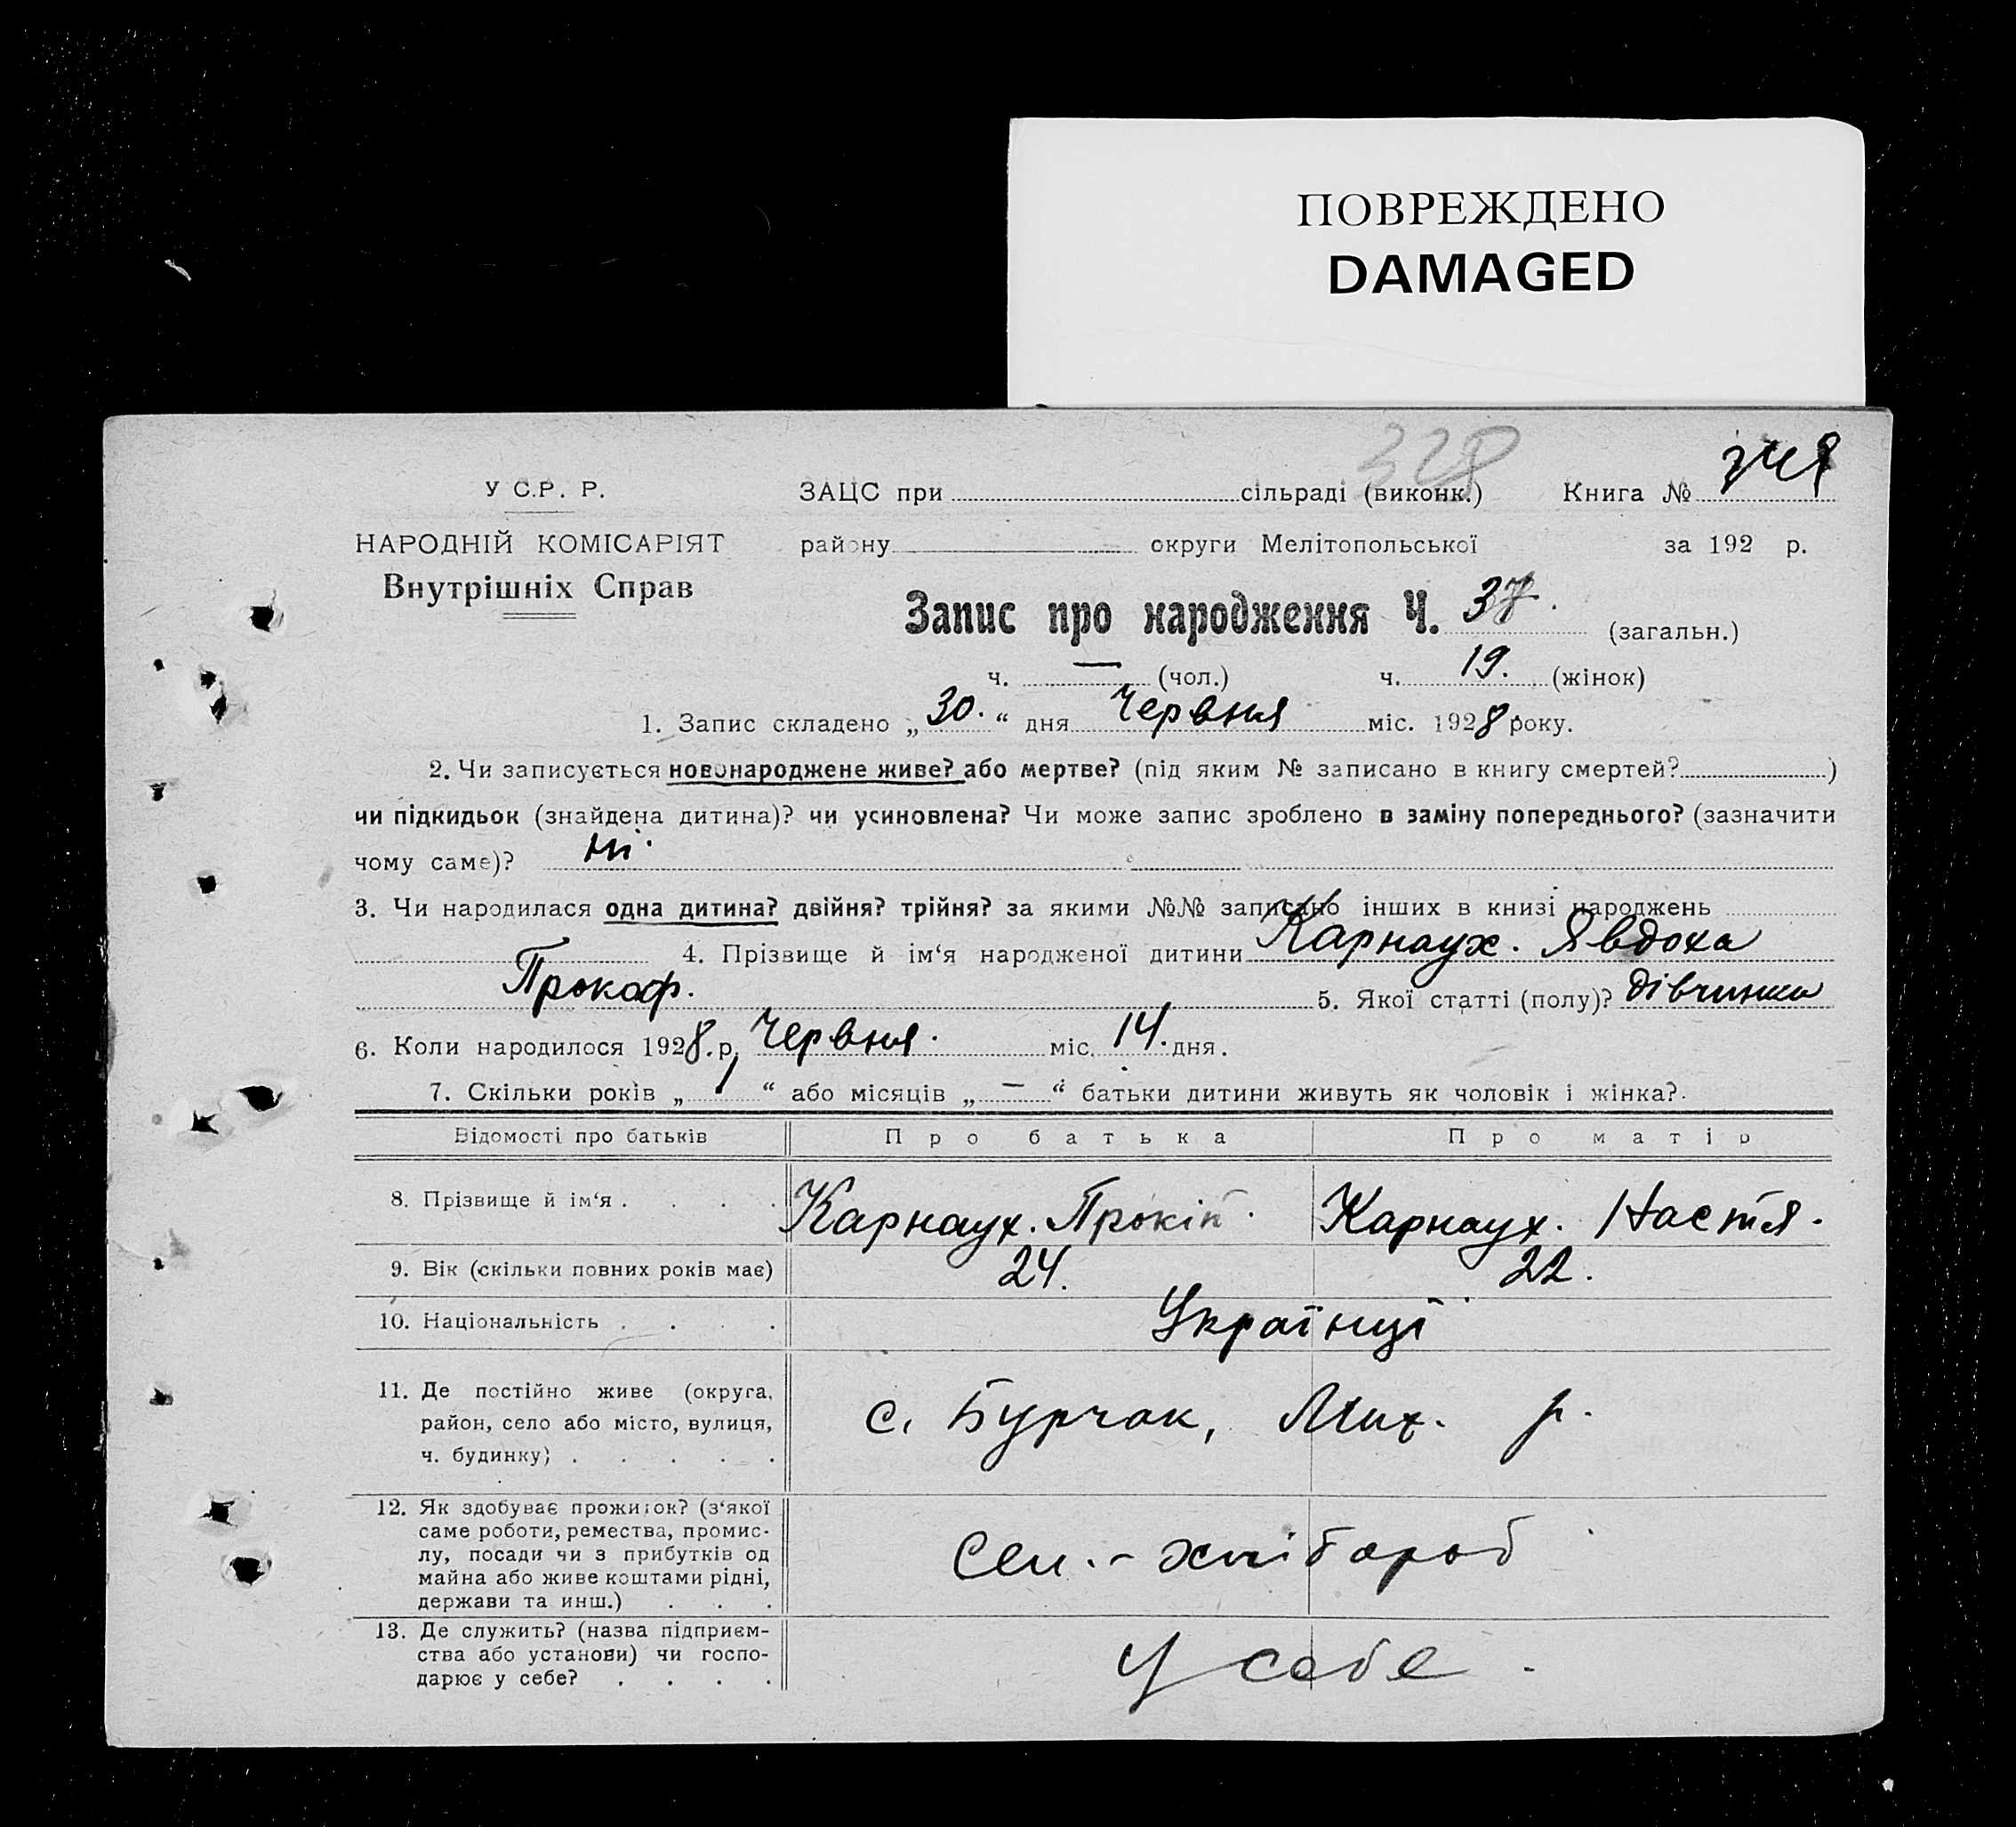 ПОВРЕЖДЕНО
DAMAGED
328
У С.Р. Р. ЗАЦС при сільраді (виконк.) Книга №
НАРОДНІЙ КОМІСАРІЯТ району округи Мелітопольської за 192 р.
Внутрішніх Справ
Запис про народження Ч. 37. (загальн.)
ч. — (чол.) ч. 19. (жінок)
1. Запис складено „30.“ дня Червня міс. 1928 року.
2. Чи записується новонароджене живе? або мертве? (під яким № записано в книгу смертей? )
чи підкидьок (знайдена дитина)? чи усиновлена? Чи може запис зроблено в заміну попереднього? (зазначити
чому саме)? Ні.
3. Чи народилася одна дитина? двійня? трійня? за якими №№ записано інших в книзі народжень
4. Прізвище й ім‘я народженої дитини Карнаух. Явдоха
Прокоф. 5. Якої статті (полу)? дівчинка
6. Коли народилося 1928. р. Червня. міс. 14. дня.
7. Скільки років „1“ або місяців „—“ батьки дитини живуть як чоловік і жінка?
Відомості про батьків Про батька Про матір
8. Прізвище й ім‘я . . . . Карнаух. Прокіп. Карнаух. Настя.
9. Вік (скільки повних років має) 24. 22.
10. Національність . . . . Українці
11. Де постійно живе (округа,
район, село або місто, вулиця,
ч. будинку) . . . . . с. Бурчак, Мих. р.
12. Як здобуває прожиток? (з‘якої
саме роботи, ремества, промис-
лу, посади чи з прибутків од
майна або живе коштами рідні,
держави та инш.) . . . Сел.-хлібороб
13. Де служить? (назва підприєм-
ства або установи) чи госпо-
дарює у себе? . . . . У себе.